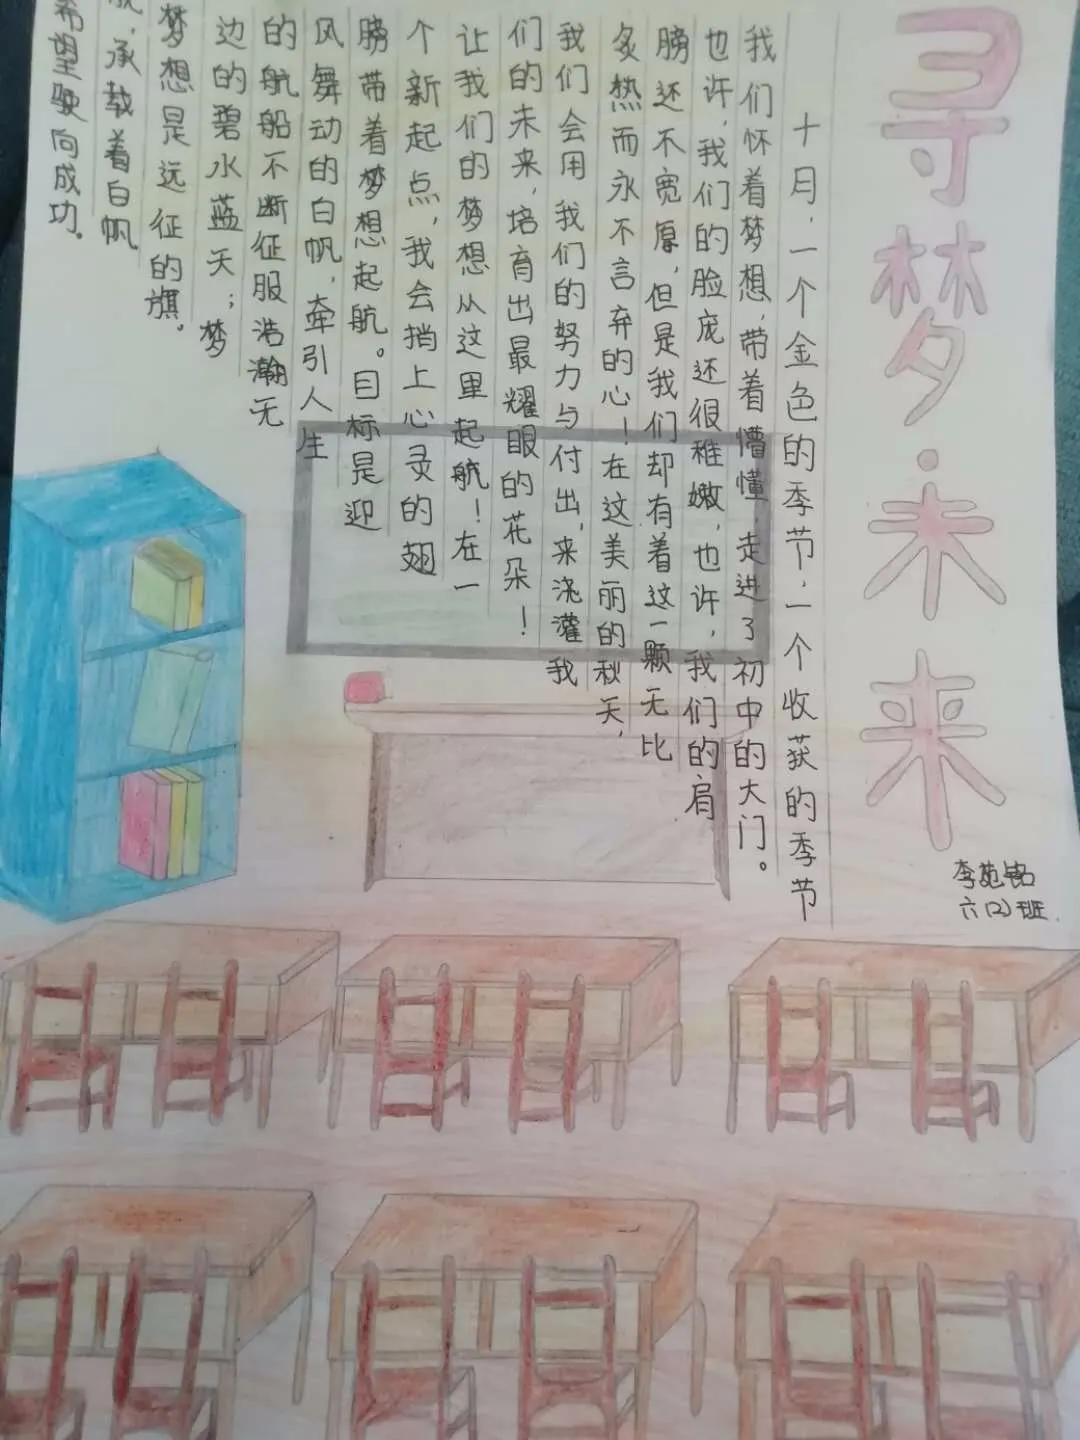 寻梦·未来
李苑铭
六(2)班
十月，一个金色的季节，一个收获的季节
我们怀着梦想，带着懵懂，走进了初中的大门。
也许，我们的脸庞还很稚嫩，也许，我们的肩
膀还不宽厚，但是我们却有着这一颗无比
炙热而永不言弃的心！在这美丽的秋天，
我们会用我们的努力与付出，来浇灌我
们的未来，培育出最耀眼的花朵！
让我们的梦想从这里起航！在一
个新起点，我会捎上心灵的翅
膀带着梦想起航。目标是迎
风舞动的白帆，牵引人生
的航船不断征服浩瀚无
边的碧水蓝天；梦
梦想是远征的旗。
，承载着白帆
希望驶向成功。